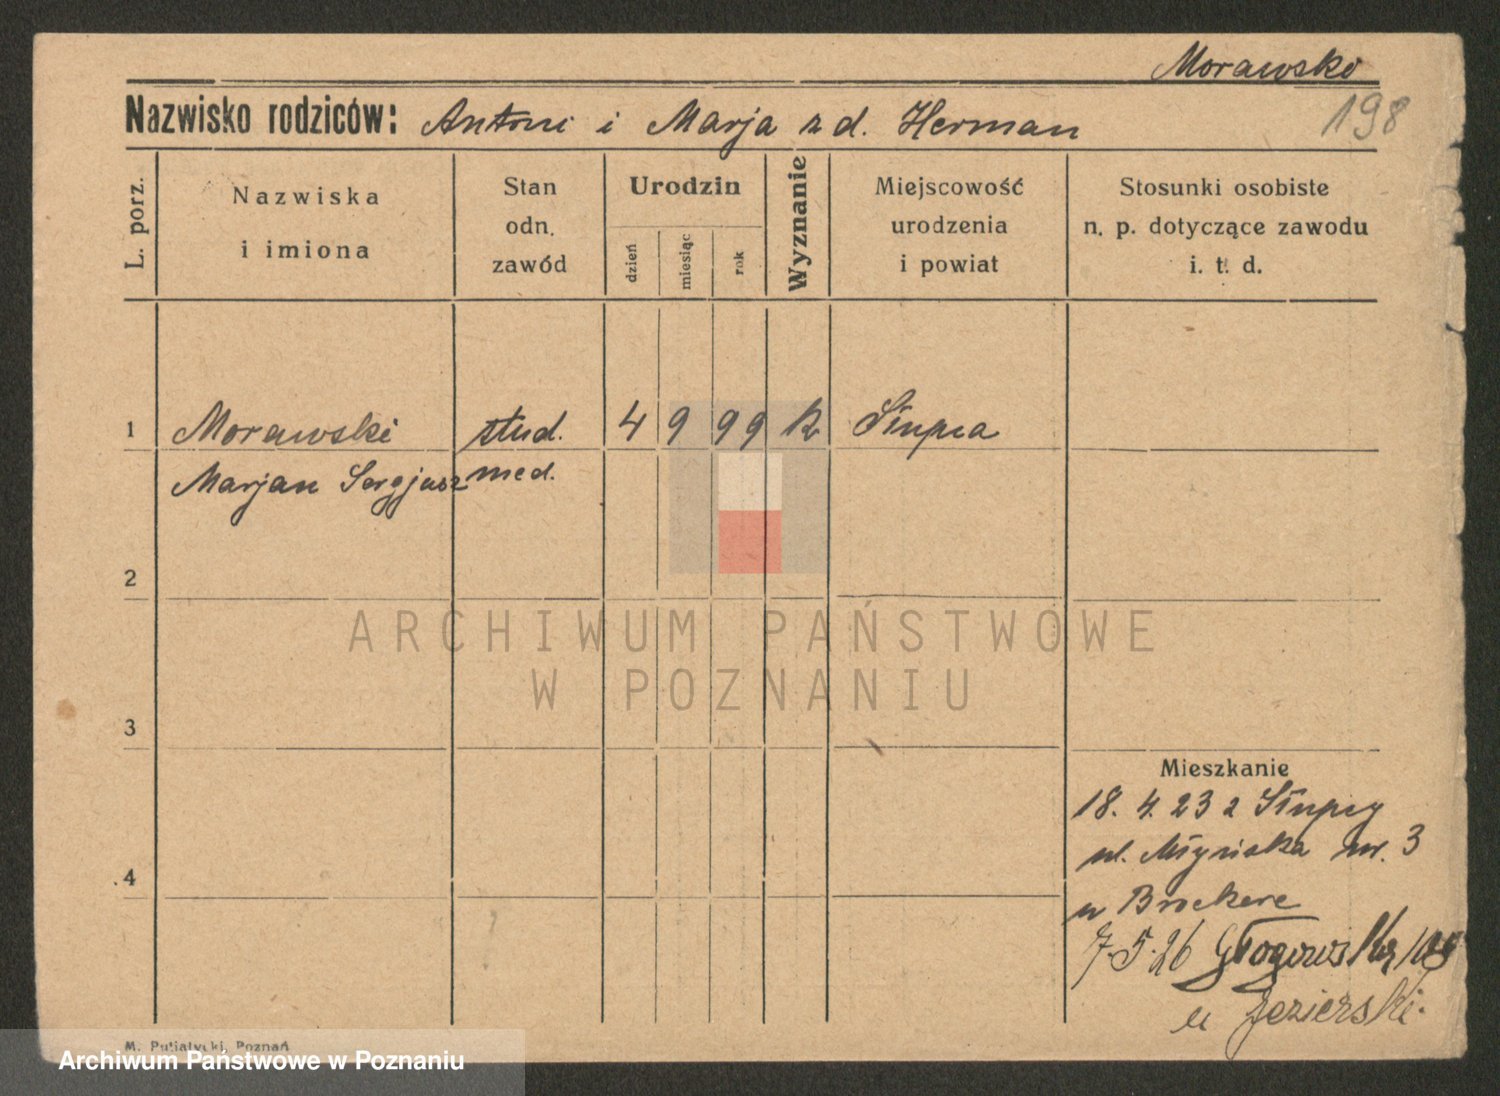 Morawski
198
Nazwisko rodziców: Antoni i Marja z d. Herman
L. porz.
Nazwiska
i imiona
Stan
odn.
zawód
Urodzin
dzień
miesiąc
rok
Wyznanie
Miejscowość
urodzenia
i powiat
Stosunki osobiste
n. p. dotyczące zawodu
i. t. d.
1 Morawski stud. 4 9 99 k Słupca
Marjan Sergjusz med.
2
ARCHIWUM PAŃSTWOWE
W POZNANIU
3
Mieszkanie
18. 4. 23 z Słupcy
ul. Młyńska nr. 3
4
u
7.5.26 Głogowska
u Jezierski.
M. Putiatycki, Poznań
Archiwum Państwowe w Poznaniu